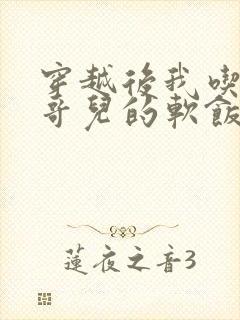 穿越後我喫
哥兒的軟飯
蓮夜之音3